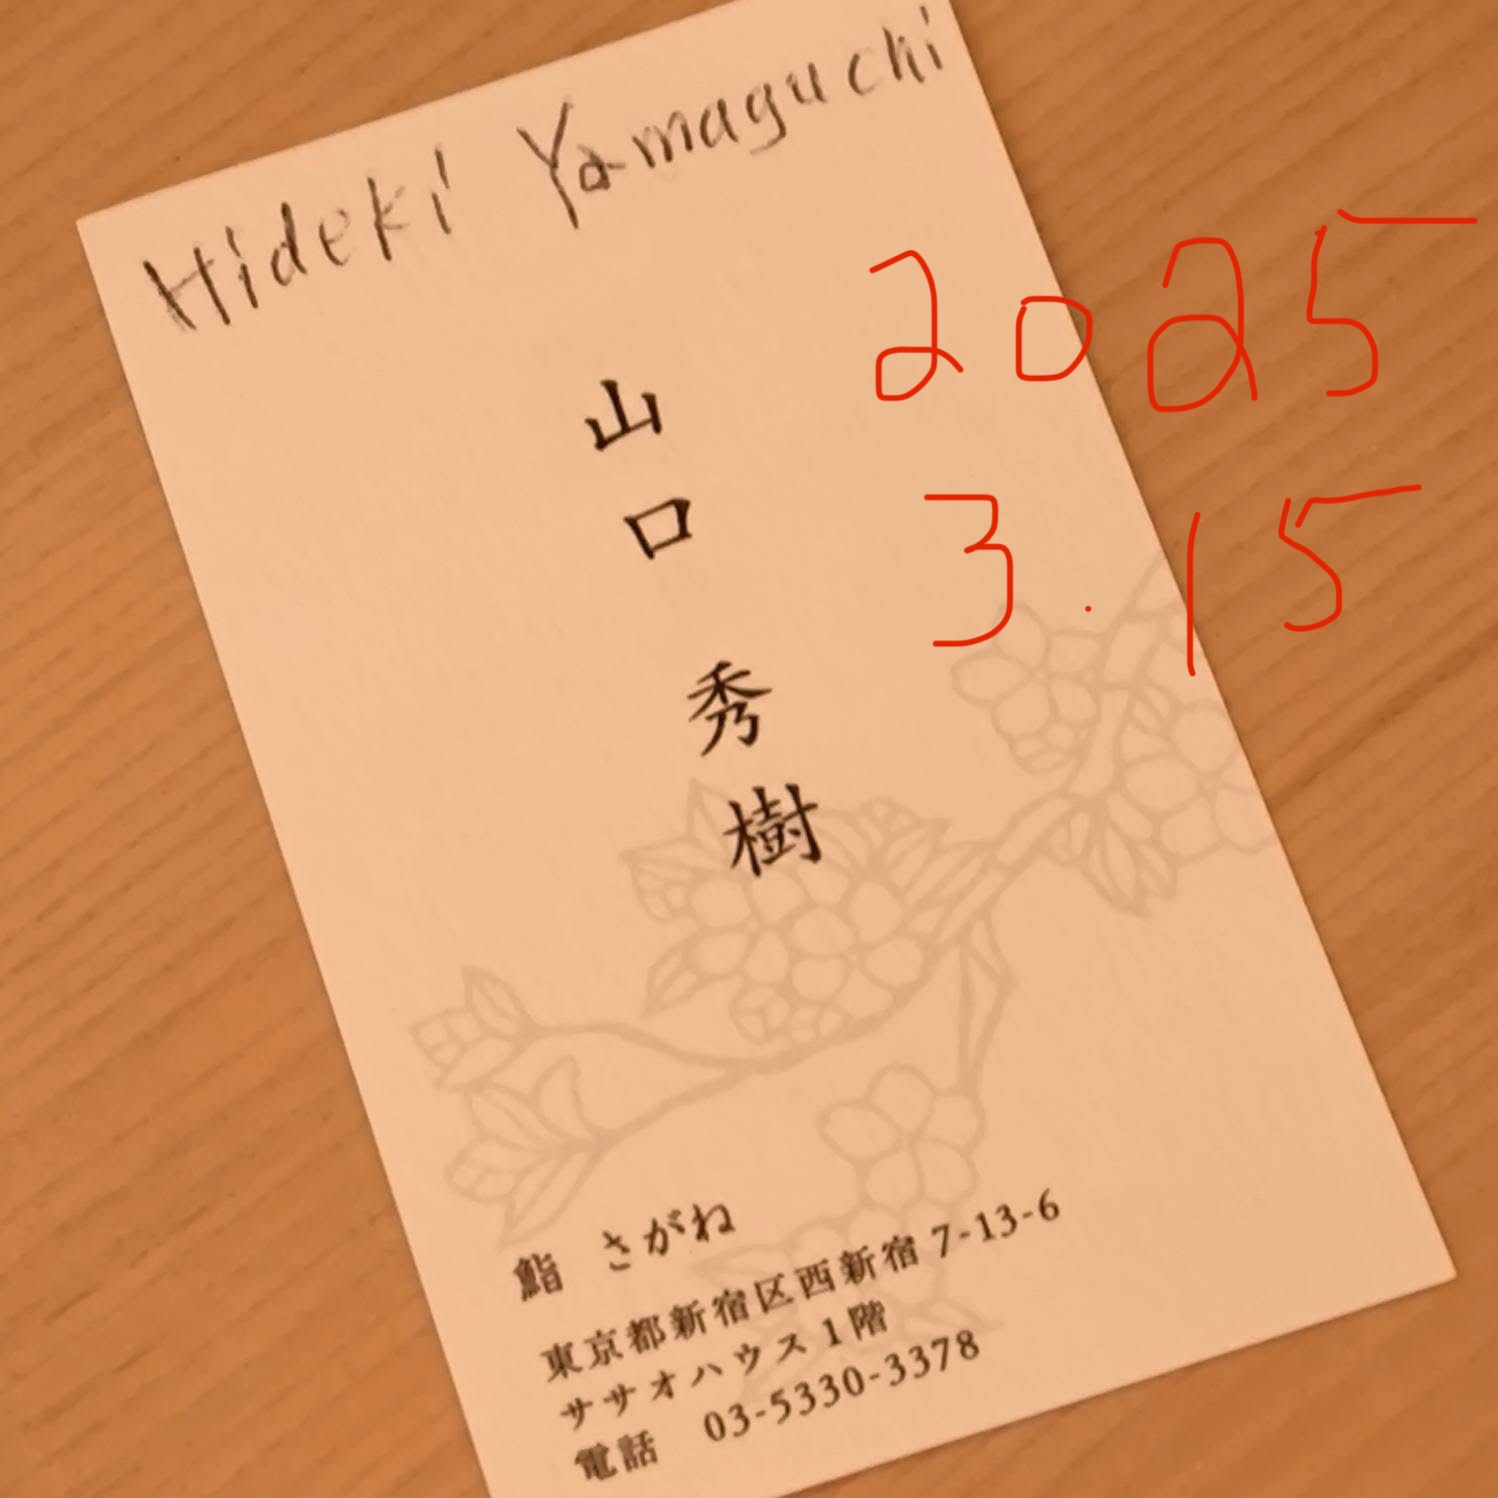 Hideki Yamaguchi
2025
3.15
山口 秀樹
鮨 さがね
東京都新宿区西新宿 7-13-6
ササオハウス 1 階
電話 03-5330-3378